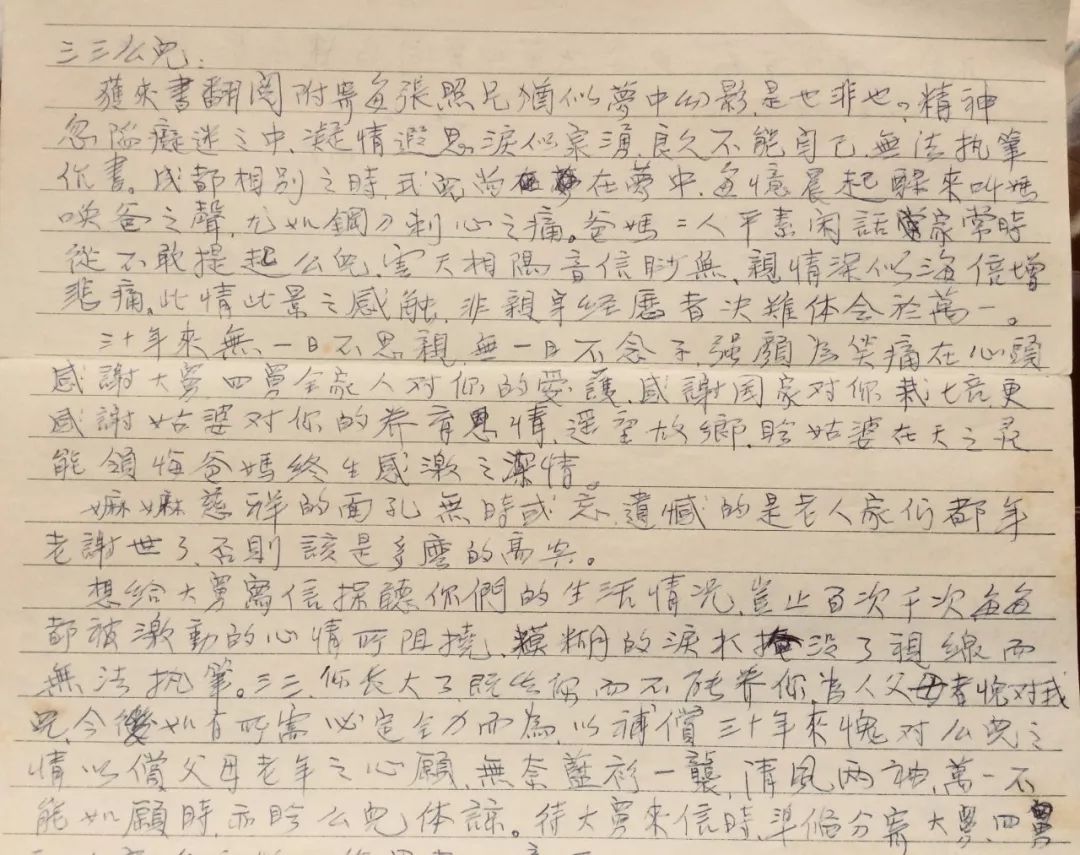 三三么兒：
獲來書翻閱附寄每張照片猶似夢中幻影是也非也，精神
忽陷癡迷之中，凝情遐思淚似泉湧，良久不能自已，無法执筆
作書。成都相別之時，我兒尚在夢中，每憶晨起醒來叫媽
喚爸之聲，尤如鋼刀刺心之痛。爸媽二人平素闲話家常時
從不敢提起么兒，雲天相隔音信眇無，親情深似海倍增
悲痛，此情此景之感触，非親身经歷者决难体会於萬一。
三十年來無一日不思親，無一日不念子强顏為笑痛在心頭
感謝大舅四舅全家人对你的愛護，感謝国家对你栽培，更
感謝姑婆对你的养育恩情，遥望故鄉，盼姑婆在天之灵
能領悔爸媽终生感激之深情。
嫲嫲慈祥的面孔無時或忘，遺憾的是老人家们都年
老謝世了，否則該是多麼的高兴。
想给大舅寫信探聽你們的生活情况，豈止百次千次每每
都被激動的心情所阻撓，模糊的淚水掩没了視線而
無法执筆。三三，你长大了既生你而不能养你，为人父母者愧对我
兒，今後如有所需必定全力而為，以補償三十年來愧对么兒之
情以償父母老年之心願，無奈藍衫一襲，清風两袖，萬一不
能如願時，亦盼么兒体諒。待大舅來信時，準備分寄大舅、四舅